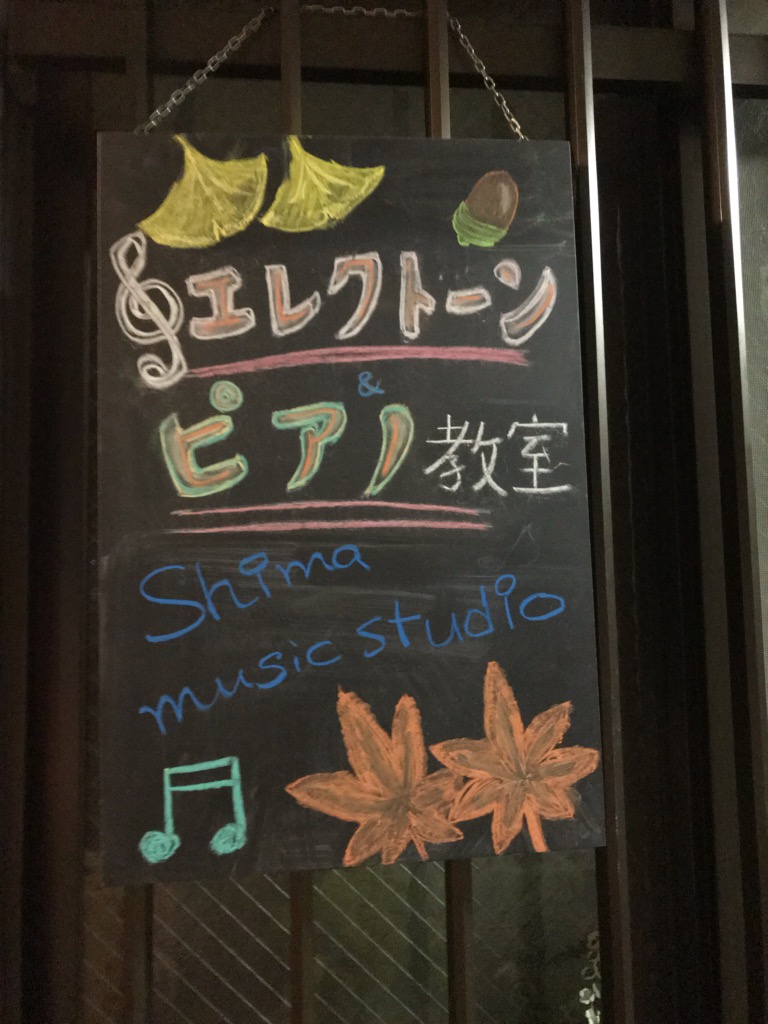 エレクトーン
&
ピアノ教室
Shima
music studio